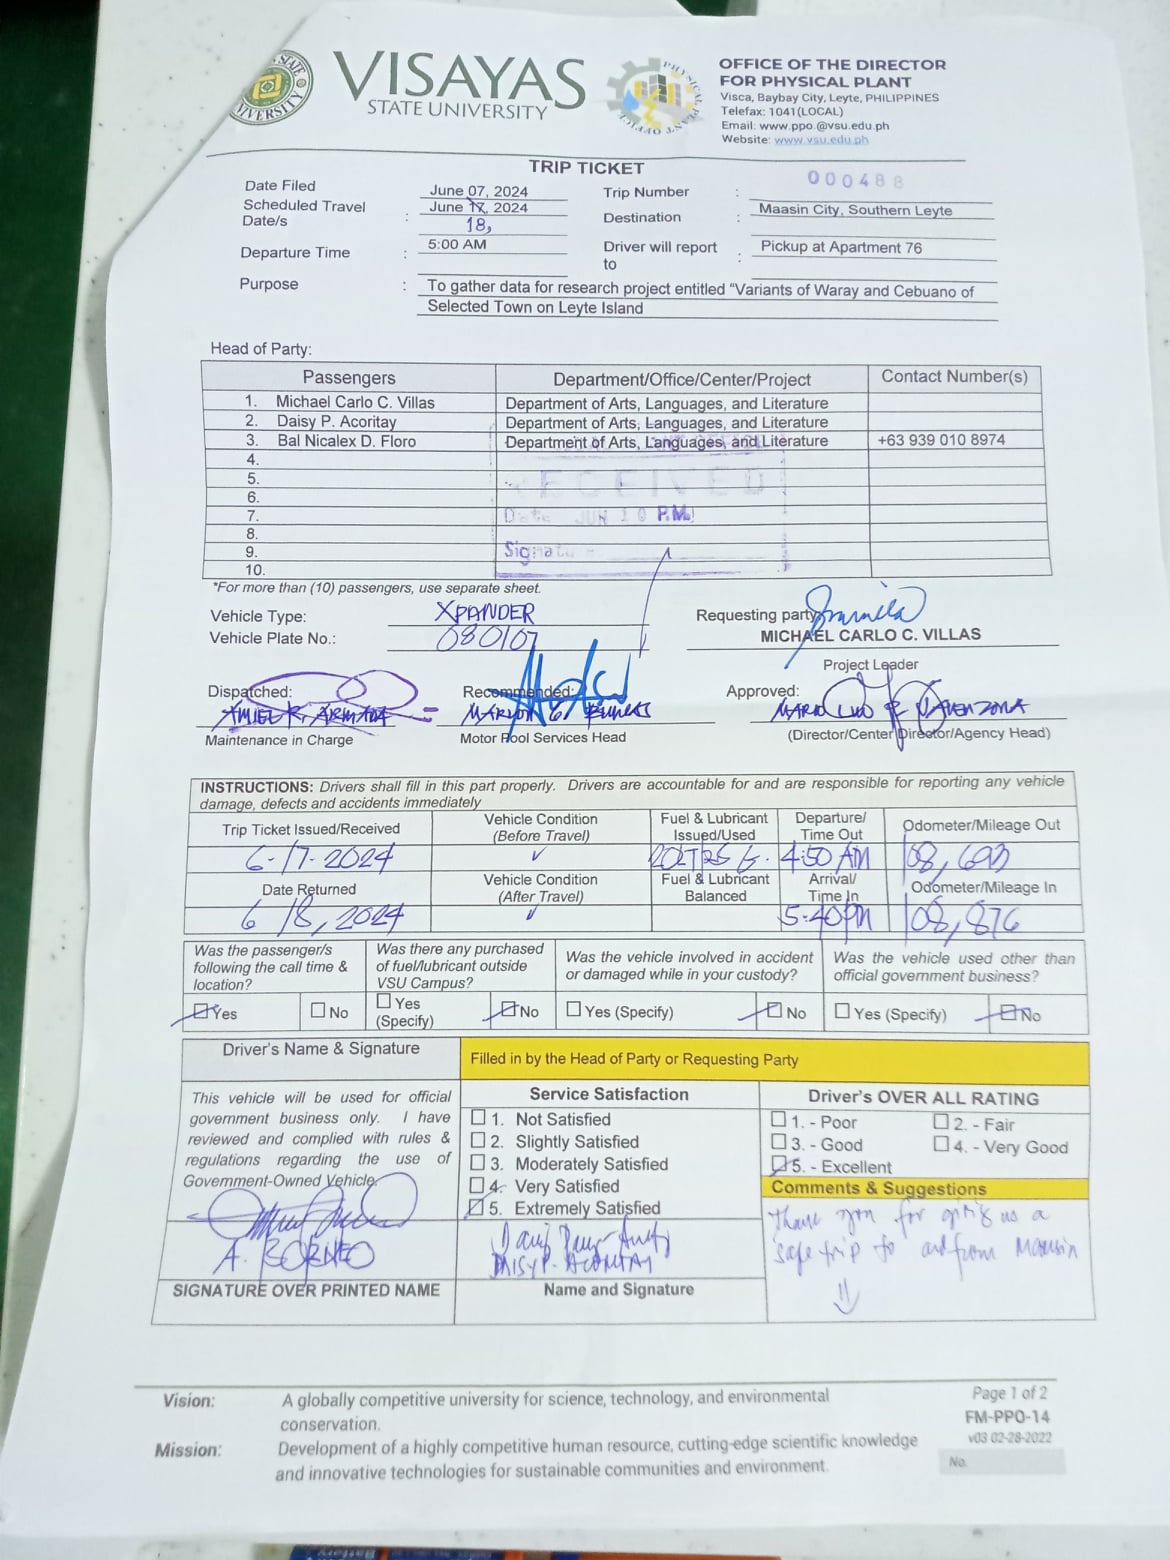 VISAYAS
STATE UNIVERSITY
OFFICE OF THE DIRECTOR
FOR PHYSICAL PLANT
Visca, Baybay City, Leyte, PHILIPPINES
Telefax: 1041(LOCAL)
Email: www.ppo.@vsu.edu.ph
Website: www.vsu.edu.ph
TRIP TICKET
Date Filed June 07, 2024 Trip Number : 000488
Scheduled Travel Date/s : June 2024 18, Destination : Maasin City, Southern Leyte
Departure Time : 5:00 AM Driver will report to : Pickup at Apartment 76
Purpose : To gather data for research project entitled "Variants of Waray and Cebuano of
Selected Town on Leyte Island
Head of Party:
Passengers Department/Office/Center/Project Contact Number(s)
1. Michael Carlo C. Villas Department of Arts, Languages, and Literature
2. Daisy P. Acoritay Department of Arts, Languages, and Literature
3. Bal Nicalex D. Floro Department of Arts, Languages, and Literature +63 939 010 8974
4.
5. RECEIVED
6.
7. Date JUN 10 P.M.
8.
9. Signature
10.
*For more than (10) passengers, use separate sheet.
Vehicle Type: XPANDER Requesting party
Vehicle Plate No.: 080107 MICHAEL CARLO C. VILLAS
Project Leader
Dispatched: Recommended: Approved:
AMIEL R. ARMADA MARLON G.
Maintenance in Charge Motor Pool Services Head (Director/Center Director/Agency Head)
INSTRUCTIONS: Drivers shall fill in this part properly. Drivers are accountable for and are responsible for reporting any vehicle
damage, defects and accidents immediately
Trip Ticket Issued/Received Vehicle Condition (Before Travel) Fuel & Lubricant Issued/Used Departure/ Time Out Odometer/Mileage Out
6-17-2024 4:50 AM 108,693
Date Returned Vehicle Condition (After Travel) Fuel & Lubricant Balanced Arrival/ Time In Odometer/Mileage In
6 18, 2024 5:40PM 108,876
Was the passenger/s following the call time & location? Was there any purchased of fuel/lubricant outside VSU Campus? Was the vehicle involved in accident or damaged while in your custody? Was the vehicle used other than official government business?
Yes No Yes (Specify) No Yes (Specify) No Yes (Specify) No
Driver's Name & Signature Filled in by the Head of Party or Requesting Party
This vehicle will be used for official
government business only. I have
reviewed and complied with rules &
regulations regarding the use of
Government-Owned Vehicle.
A. BORNEO
SIGNATURE OVER PRINTED NAME
Service Satisfaction
1. Not Satisfied
2. Slightly Satisfied
3. Moderately Satisfied
4. Very Satisfied
5. Extremely Satisfied
DAISY P. ACORITAY
Name and Signature
Driver's OVER ALL RATING
1. - Poor 2. - Fair
3. - Good 4. - Very Good
5. - Excellent
Comments & Suggestions
Thank you for giving us a
safe trip to and from Maasin
Vision: A globally competitive university for science, technology, and environmental
conservation.
Mission: Development of a highly competitive human resource, cutting-edge scientific knowledge
and innovative technologies for sustainable communities and environment.
Page 1 of 2
FM-PPO-14
v03 02-28-2022
No.